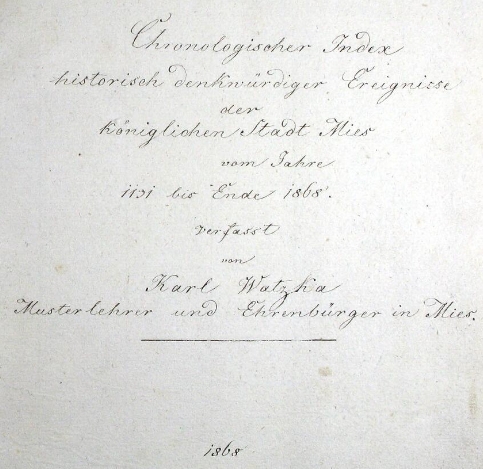 Chronologischer Index
historisch denkwürdiger Ereignisse
der
königlichen Stadt Mies
vom Jahre
1131 bis Ende 1868.
verfasst
von
Karl Watzka
Musterlehrer und Ehrenbürger in Mies.
1868